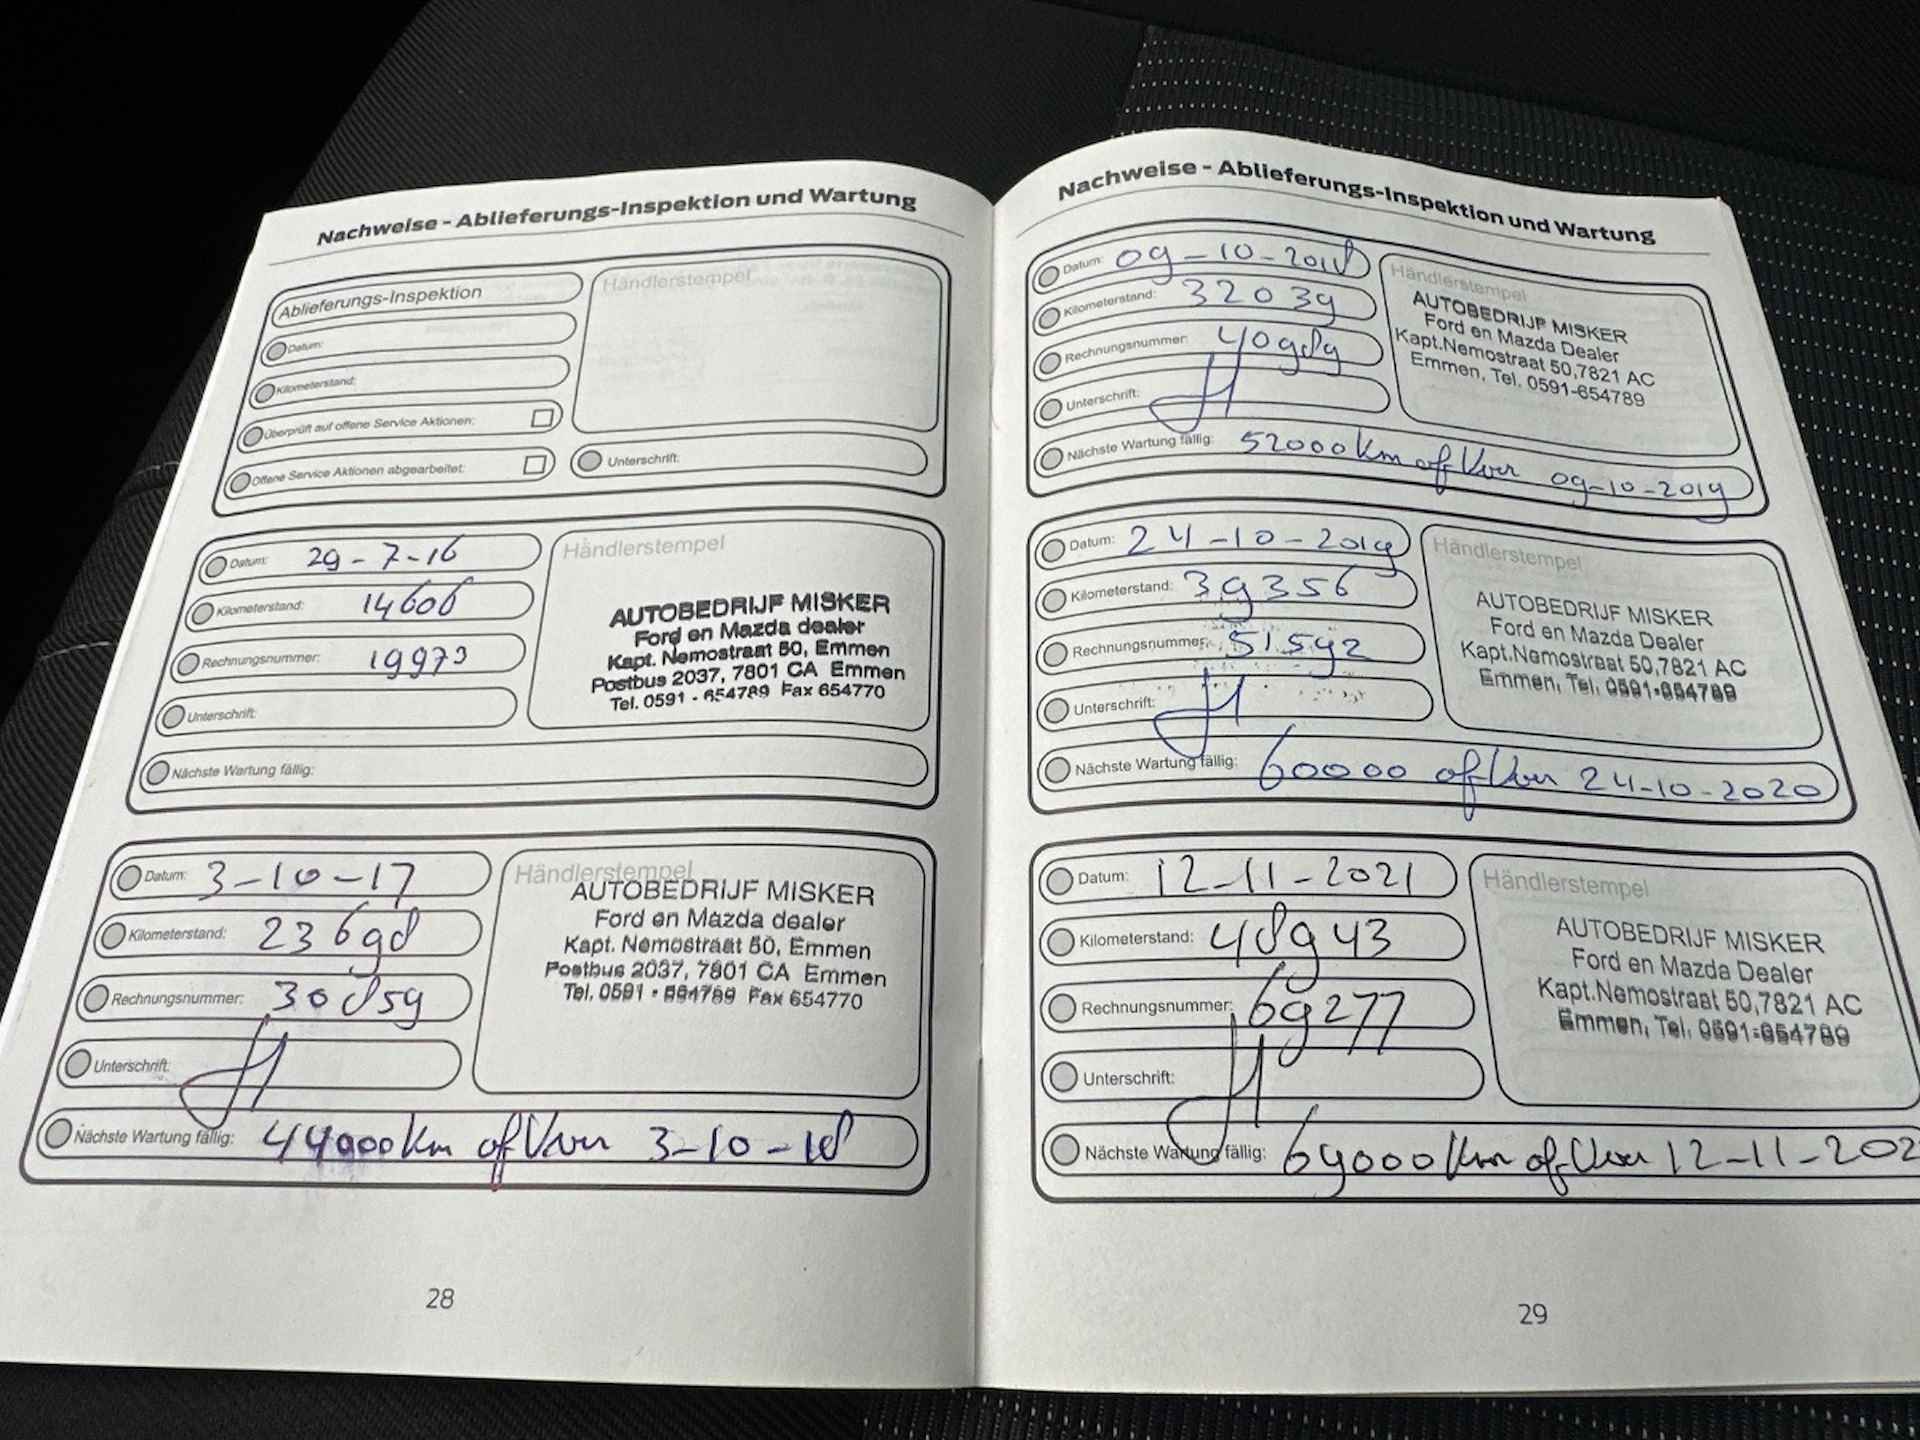 Nachweise - Ablieferungs-Inspektion und Wartung
Ablieferungs-Inspektion
Datum:
Kilometerstand:
Überprüft auf offene Service Aktionen:
Offene Service Aktionen abgearbeitet:
Händlerstempel
Unterschrift:
Datum: 29-7-16
Kilometerstand: 14606
Rechnungsnummer: 19973
Unterschrift:
Nächste Wartung fällig:
Händlerstempel
AUTOBEDRIJF MISKER
Ford en Mazda dealer
Kapt. Nemostraat 50, Emmen
Postbus 2037, 7801 CA Emmen
Tel. 0591 - 654789 Fax 654770
Datum: 3-10-17
Kilometerstand: 23698
Rechnungsnummer: 30859
Unterschrift:
Nächste Wartung fällig: 44000 km of voor 3-10-18
Händlerstempel
AUTOBEDRIJF MISKER
Ford en Mazda dealer
Kapt. Nemostraat 50, Emmen
Postbus 2037, 7801 CA Emmen
Tel. 0591 - 654789 Fax 654770
28
Nachweise - Ablieferungs-Inspektion und Wartung
Datum: 09-10-2018
Kilometerstand: 32039
Rechnungsnummer: 40989
Unterschrift:
Nächste Wartung fällig: 52000 km of voor 09-10-2019
Händlerstempel
AUTOBEDRIJF MISKER
Ford en Mazda Dealer
Kapt.Nemostraat 50,7821 AC
Emmen, Tel. 0591-654789
Datum: 24-10-2019
Kilometerstand: 39356
Rechnungsnummer: 51592
Unterschrift:
Nächste Wartung fällig: 60000 of voor 24-10-2020
Händlerstempel
AUTOBEDRIJF MISKER
Ford en Mazda Dealer
Kapt.Nemostraat 50,7821 AC
Emmen, Tel. 0591-654789
Datum: 12-11-2021
Kilometerstand: 48943
Rechnungsnummer: 69277
Unterschrift:
Nächste Wartung fällig: 69000 km of voor 12-11-202
Händlerstempel
AUTOBEDRIJF MISKER
Ford en Mazda Dealer
Kapt.Nemostraat 50,7821 AC
Emmen, Tel. 0591-654789
29